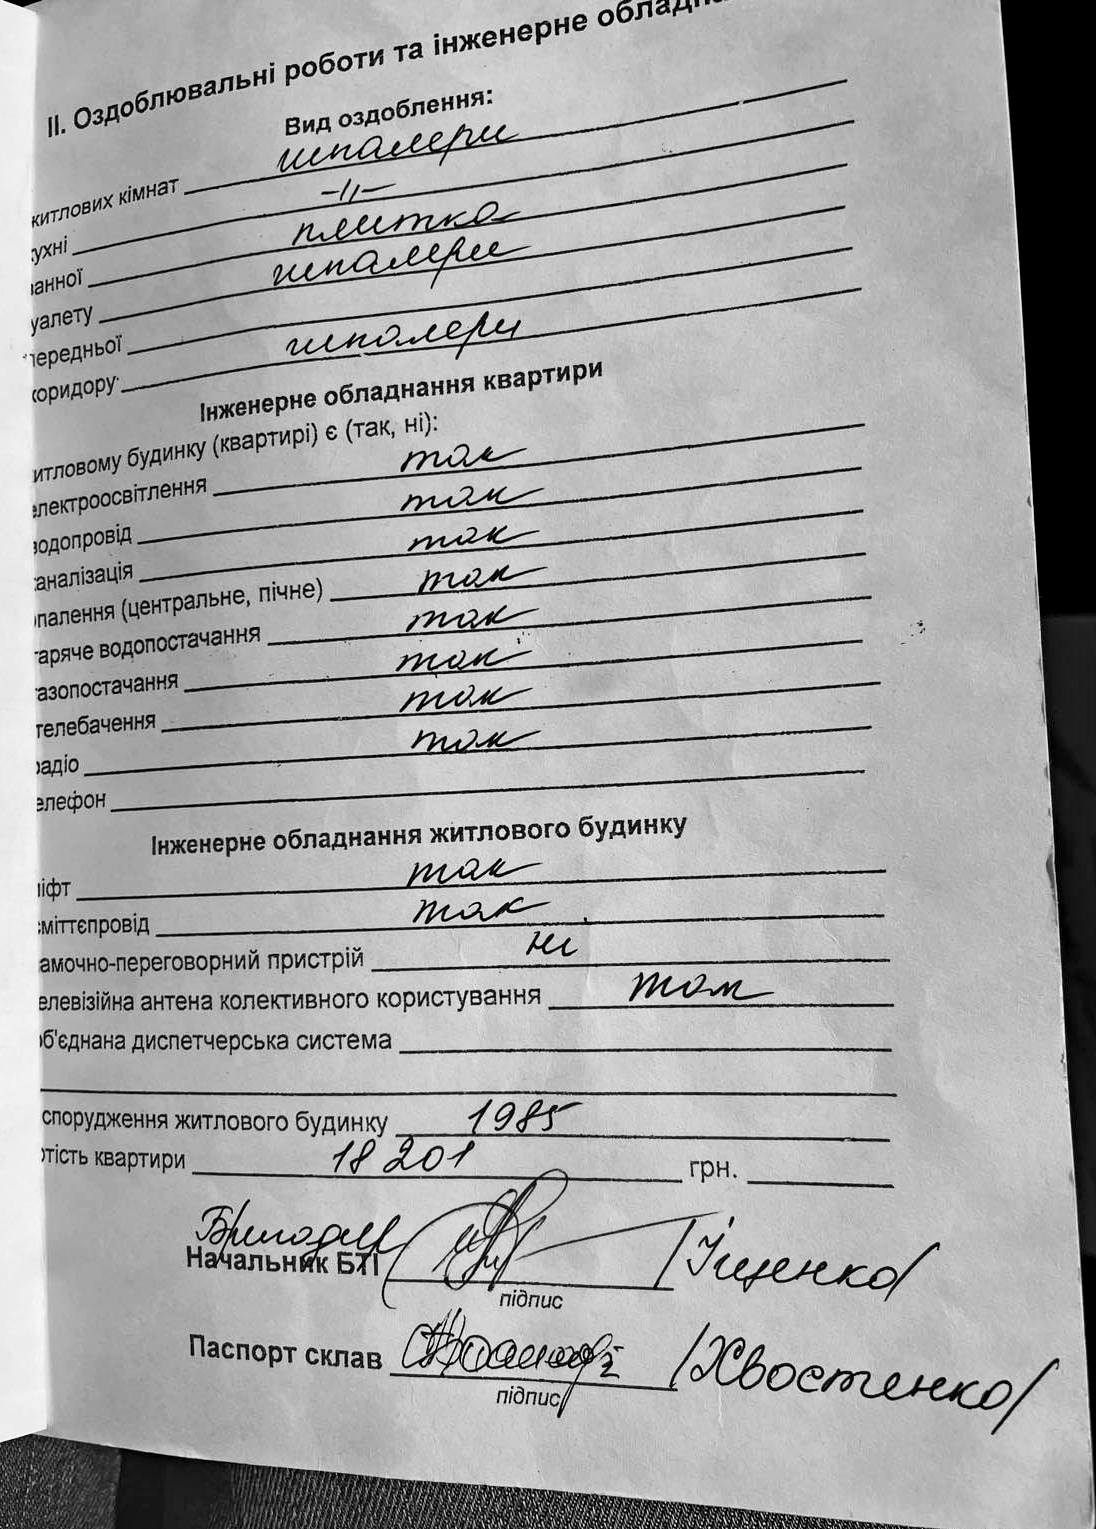 II. Оздоблювальні роботи та інженерне обладна
Вид оздоблення:
житлових кімнат шпалери
ухні -//-
анної плитка
уалету шпалери
передньої
коридору шпалери
Інженерне обладнання квартири
итловому будинку (квартирі) є (так, ні):
електроосвітлення так
водопровід так
аналізація так
опалення (центральне, пічне) так
гаряче водопостачання так
газопостачання так
телебачення так
радіо так
елефон
Інженерне обладнання житлового будинку
ліфт так
сміттєпровід так
замочно-переговорний пристрій ні
елевізійна антена колективного користування так
об'єднана диспетчерська система
спорудження житлового будинку 1985
ртість квартири 18 201 грн.
Начальник БТІ /Іщенко/
підпис
Паспорт склав /Хвостенко/
підпис